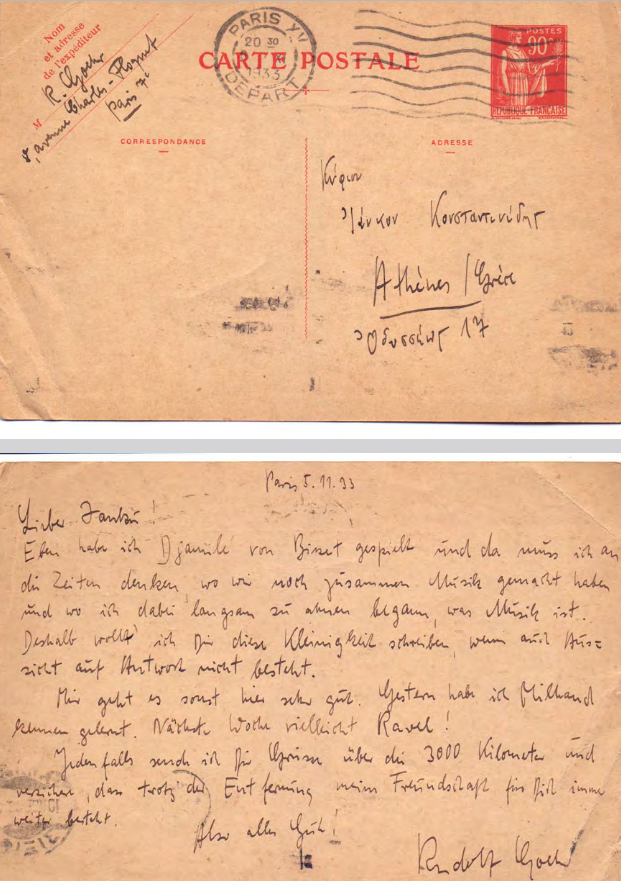 Nom
et adresse
de l'expéditeur
M R. Goehr
8, avenue Charles-Floquet
Paris 7e
PARIS XV
20 30
1933
DEPART
CARTE POSTALE
POSTES
90c
REPUBLIQUE FRANÇAISE
CORRESPONDANCE
ADRESSE
Κύριον
Γιάνκον Κονσταντινίδην
Athènes / Grèce
Ὀδυσσέως 17
Paris 5.11.33
Lieber Janku!
Eben habe ich Djamileh von Bizet gespielt und da muss ich an
die Zeiten denken, wo wir noch zusammen Musik gemacht haben
und wo ich dabei langsam zu ahnen begann, was Musik ist.
Deshalb wollt' ich Dir diese Kleinigkeit schreiben, wenn auch Aus=
sicht auf Antwort nicht besteht.
Mir geht es sonst hier sehr gut. Gestern habe ich Milhaud
kennen gelernt. Nächste Woche vielleicht Ravel!
Jedenfalls send ich Dir Grüsse über die 3000 Kilometer und
versichere, dass trotz der Entfernung meine Freundschaft für Dich imme
weiter besteht.
Also alles Gute!
Rudolf Goehr